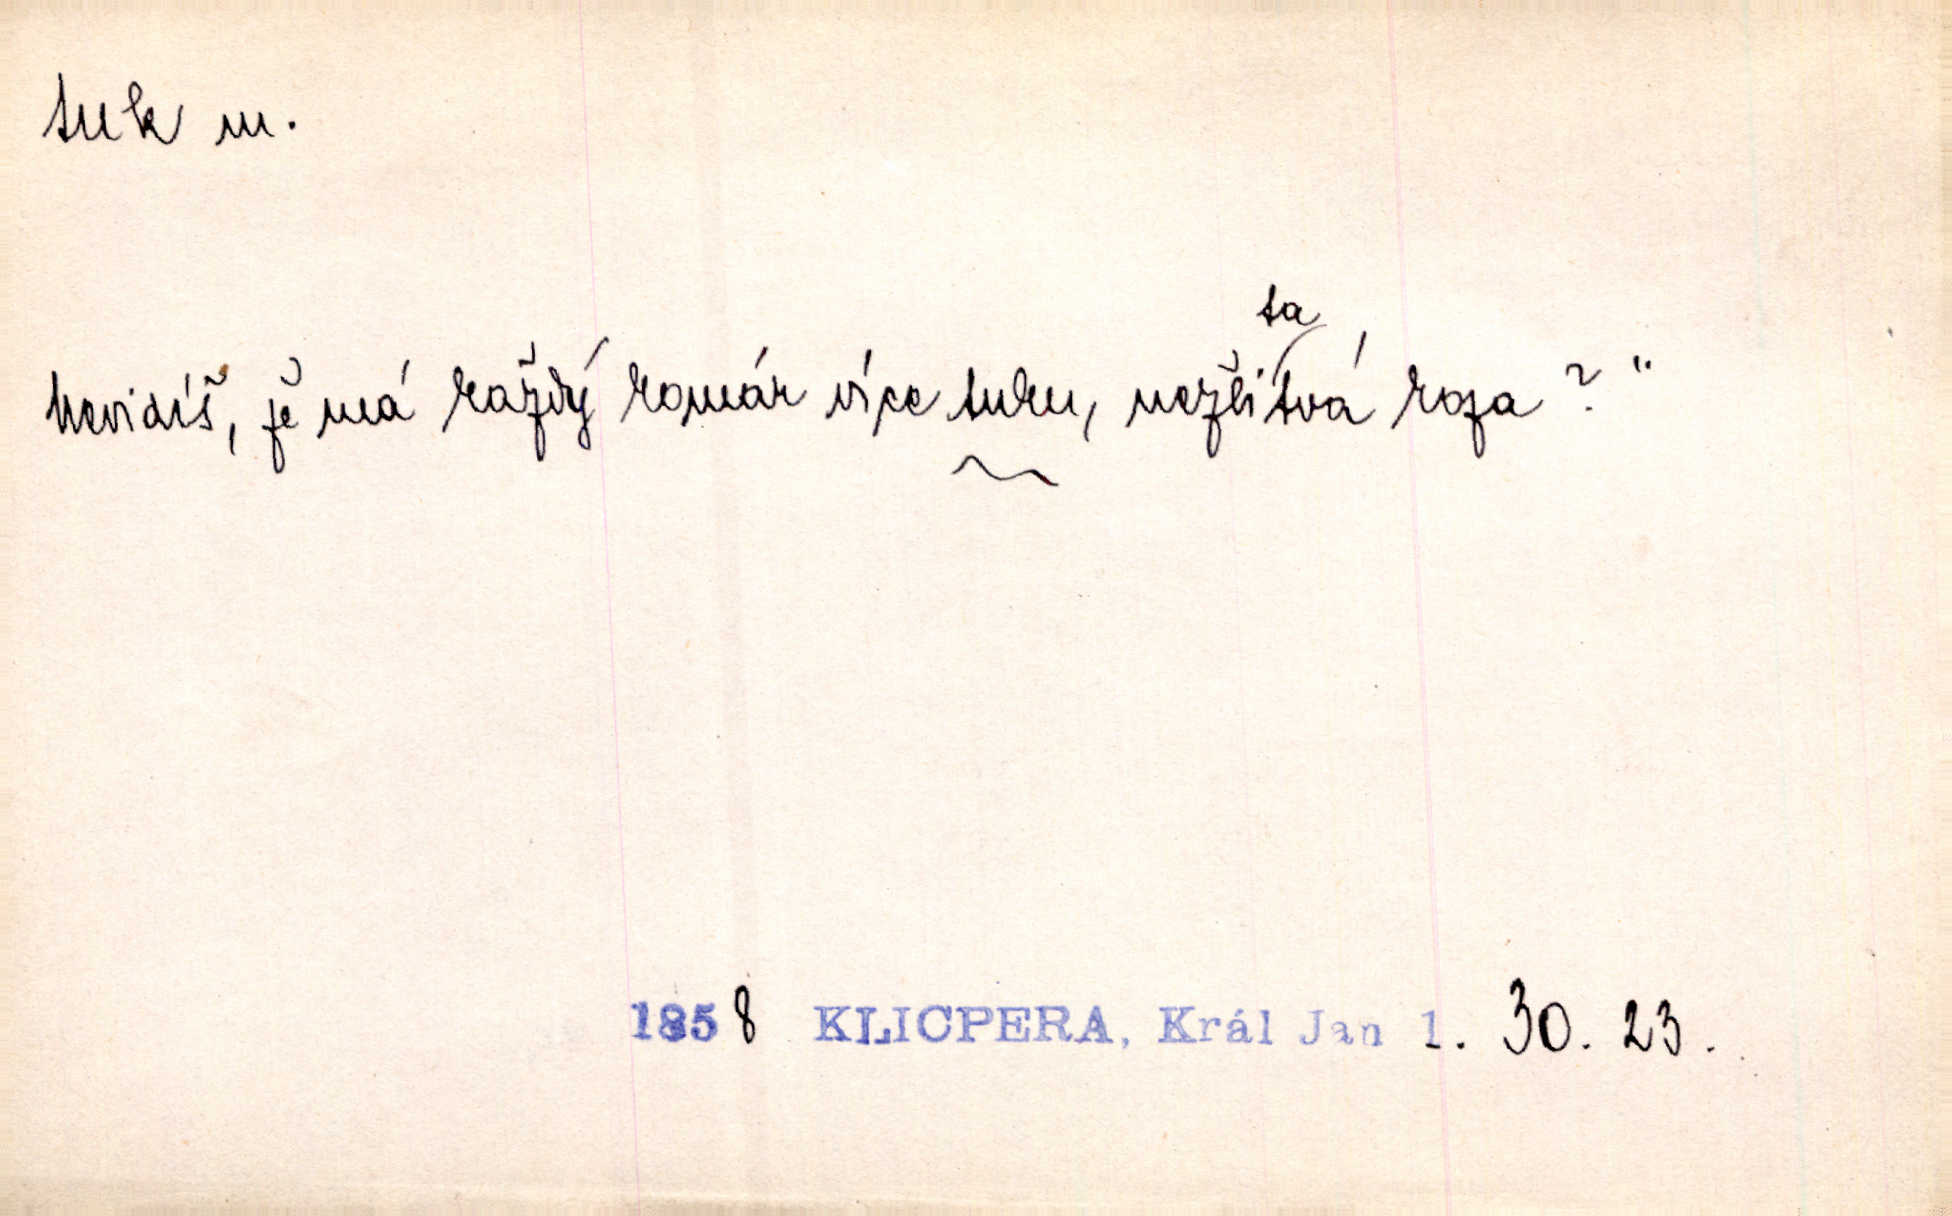 tuk m.
Nevidíš, že má každý komár více tuku, nežli ta tvá koza?"
1858 KLICPERA, Král Jan 1. 30. 23.